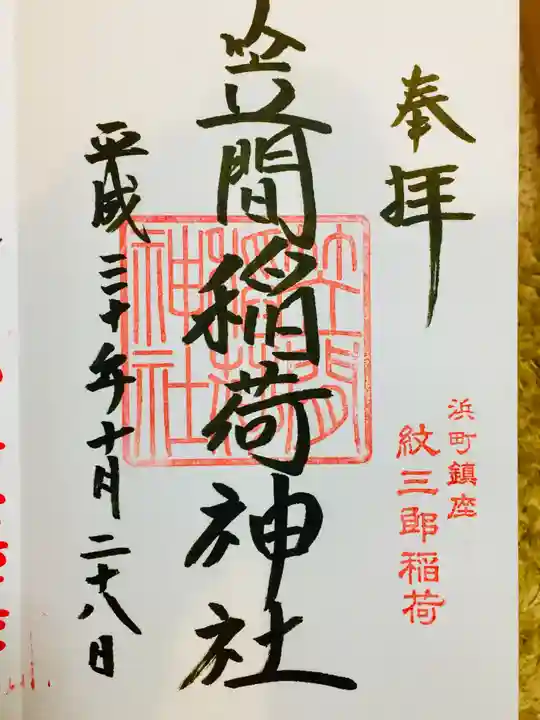 奉拝
浜町鎮座
紋三郎稲荷
笠間稲荷神社
笠間
稲荷
神社
平成三十年十月二十八日